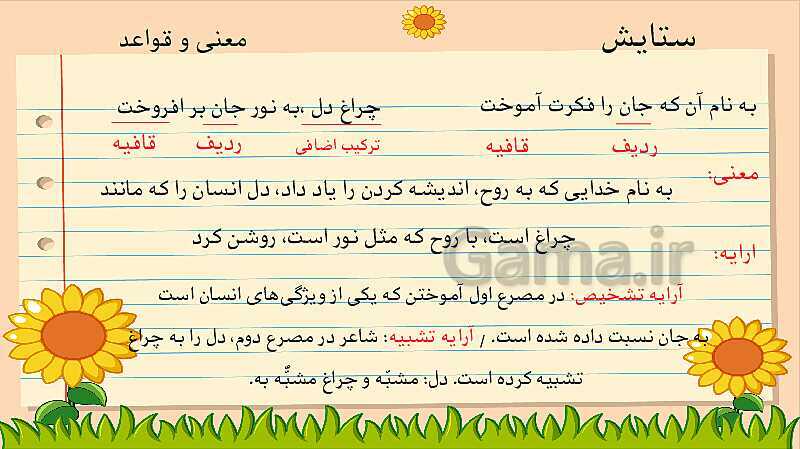 ستایش
معنی و قواعد
به نام آن که جان را فکرت آموخت چراغ دل ،به نور جان بر افروخت
ردیف قافیه ترکیب اضافی ردیف قافیه
معنی:
به نام خدایی که به روح، اندیشه کردن را یاد داد، دل انسان را که مانند
چراغ است، با روح که مثل نور است، روشن کرد
ارایه:
آرایه تشخیص: در مصرع اول آموختن که یکی از ویژگی‌های انسان است
به جان نسبت داده شده است. / آرایه تشبیه: شاعر در مصرع دوم، دل را به چراغ
تشبیه کرده است. دل: مشبّه و چراغ مشبٌّه به.
Gama.ir